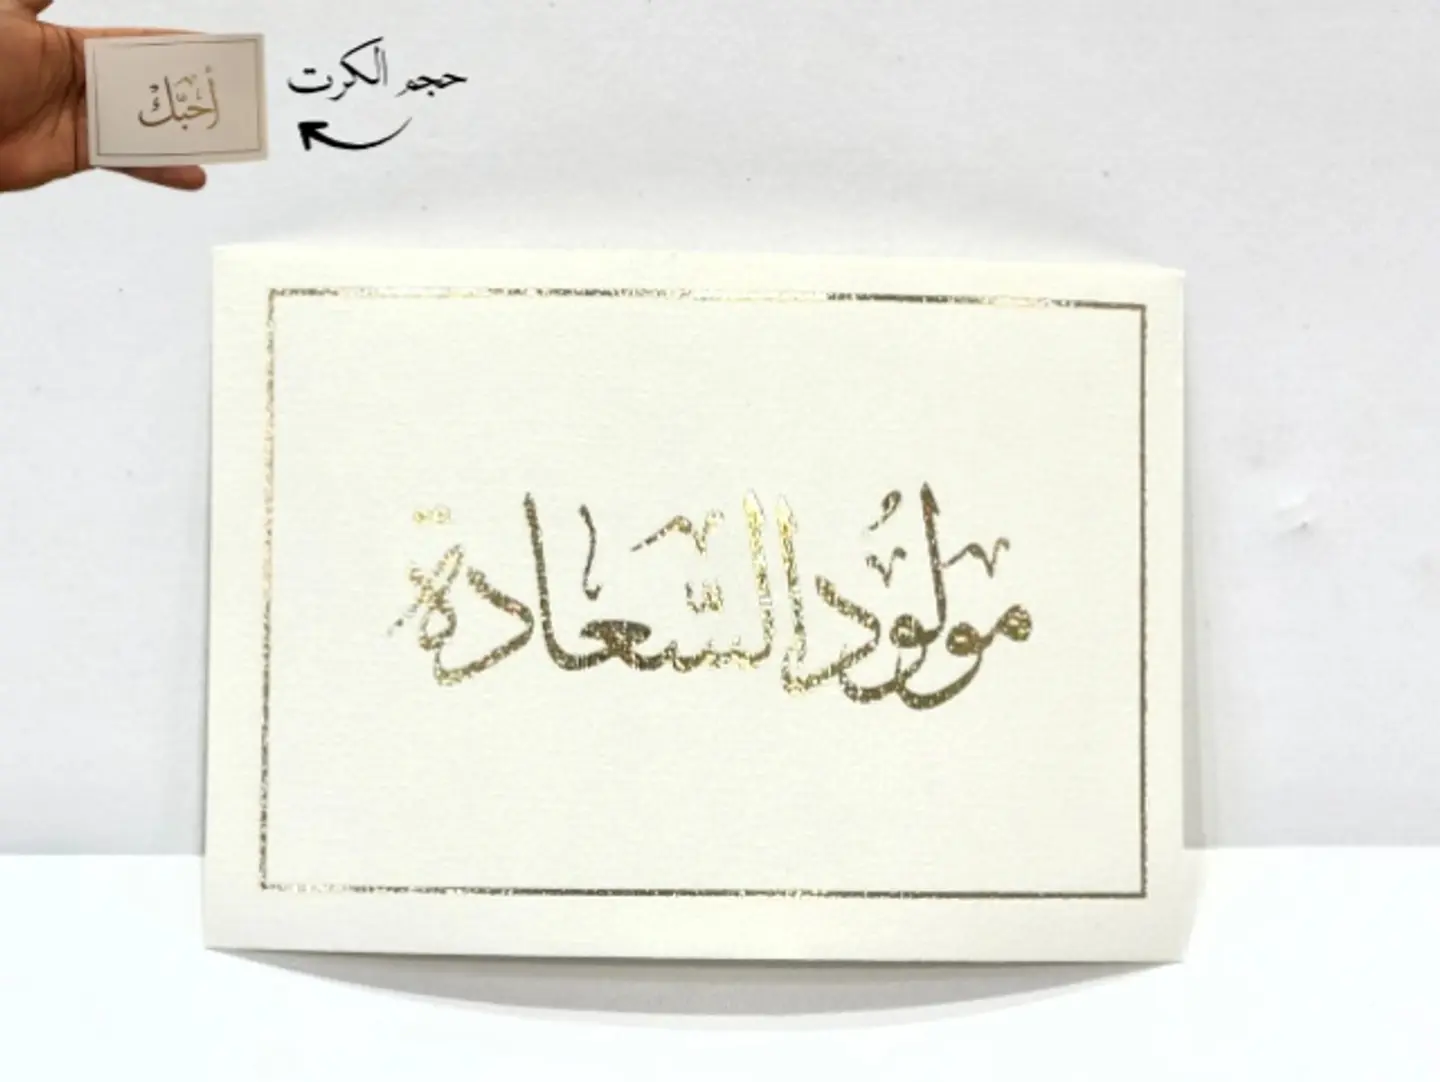 حجم الكرت
أحبك
مولود السعادة